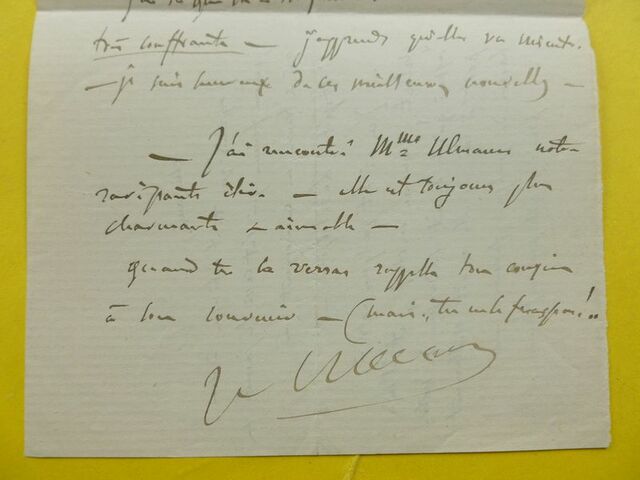 très souffrante — j'apprends qu'elle va mieux.
— je suis heureux de ces meilleures nouvelles —
— J'ai rencontré Mme Ulmann notre
ravissante — elle est toujours plus
charmante & aimable —
quand tu la verras rappelle ton cousin
à son souvenir — (mais, tu ne le feras pas!..